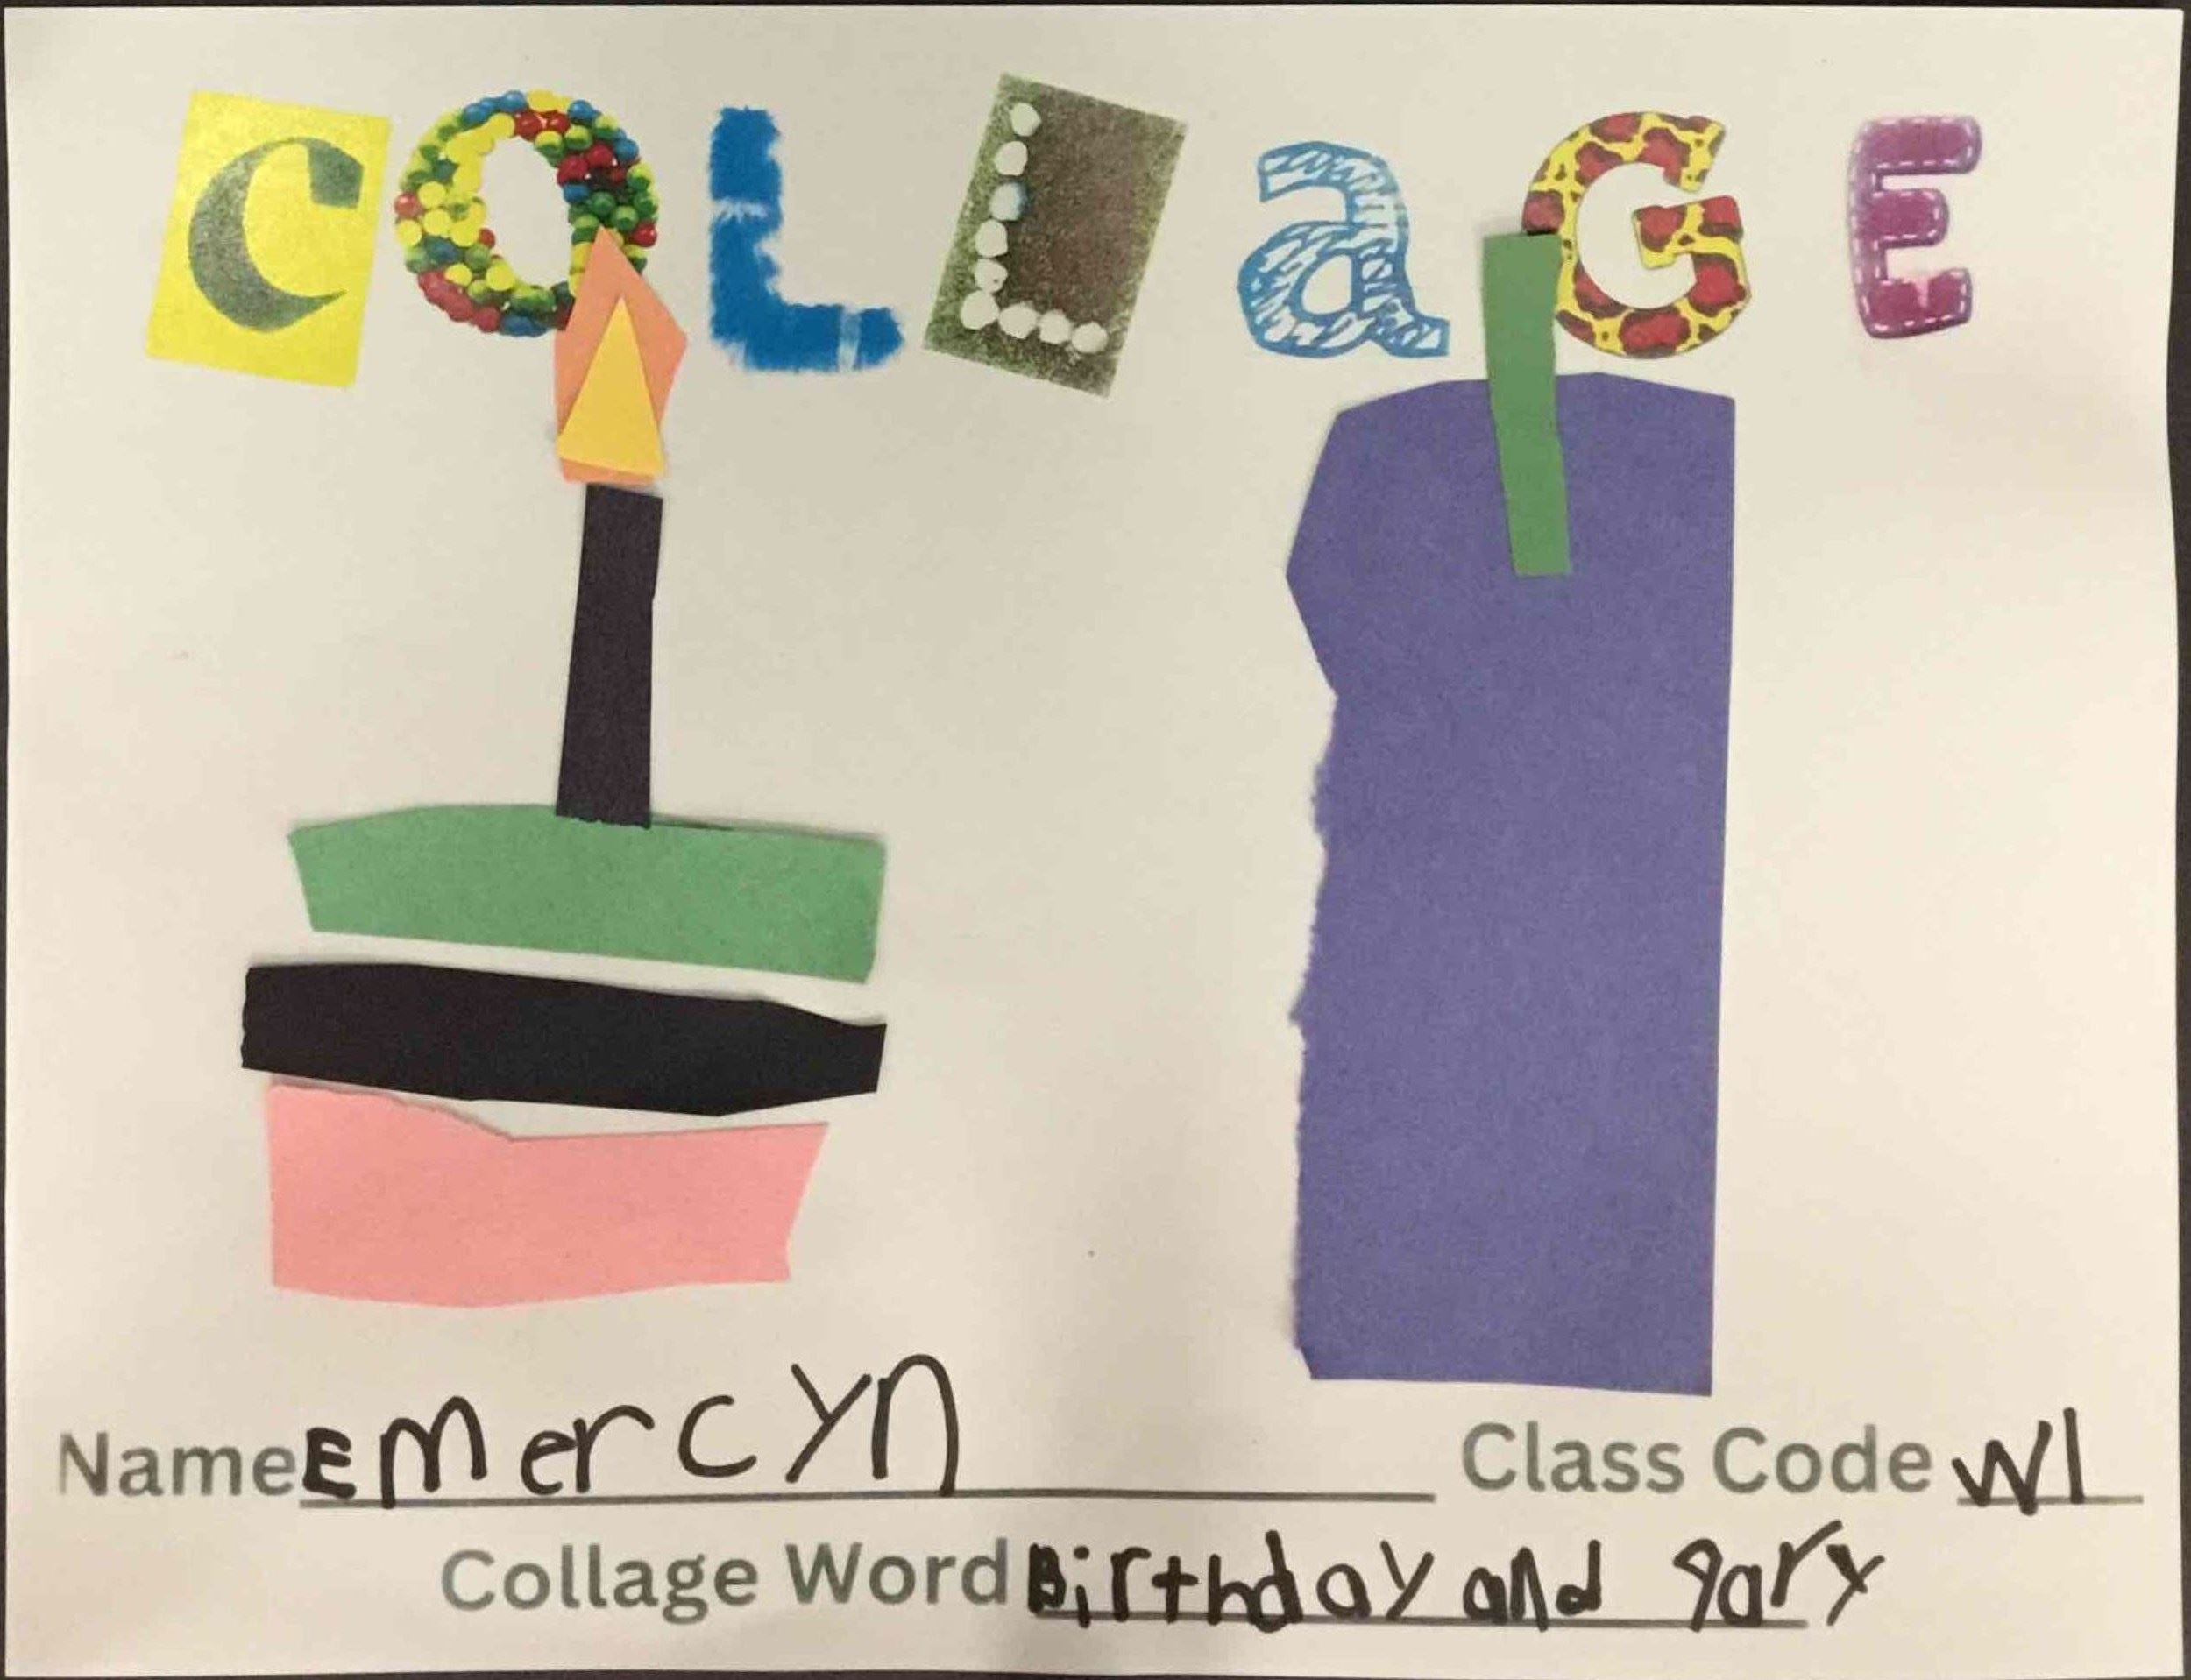 COLLaGE
Name Emercyn Class Code W1
Collage Word Birthday and gary